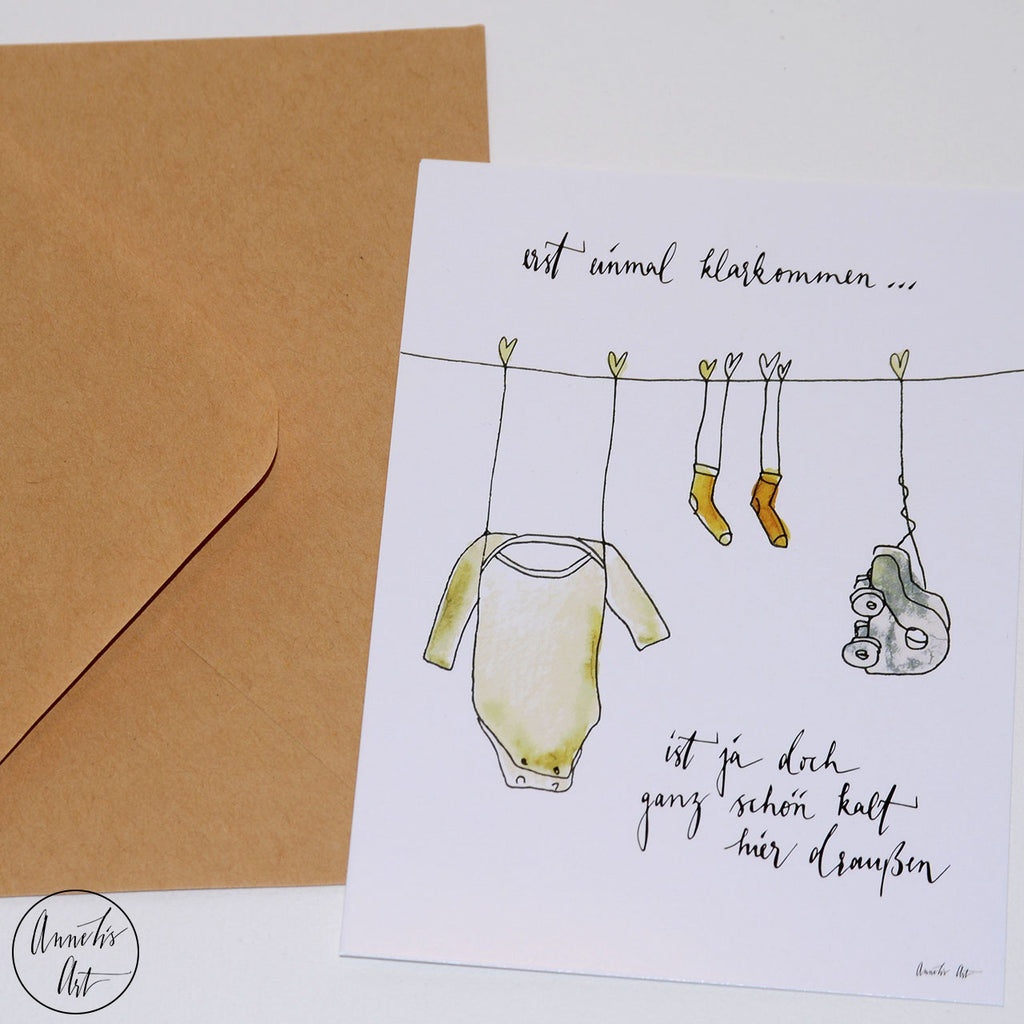 erst einmal klarkommen...
ist ja doch
ganz schön kalt
hier draußen
Annelis Art
Annelis
Art